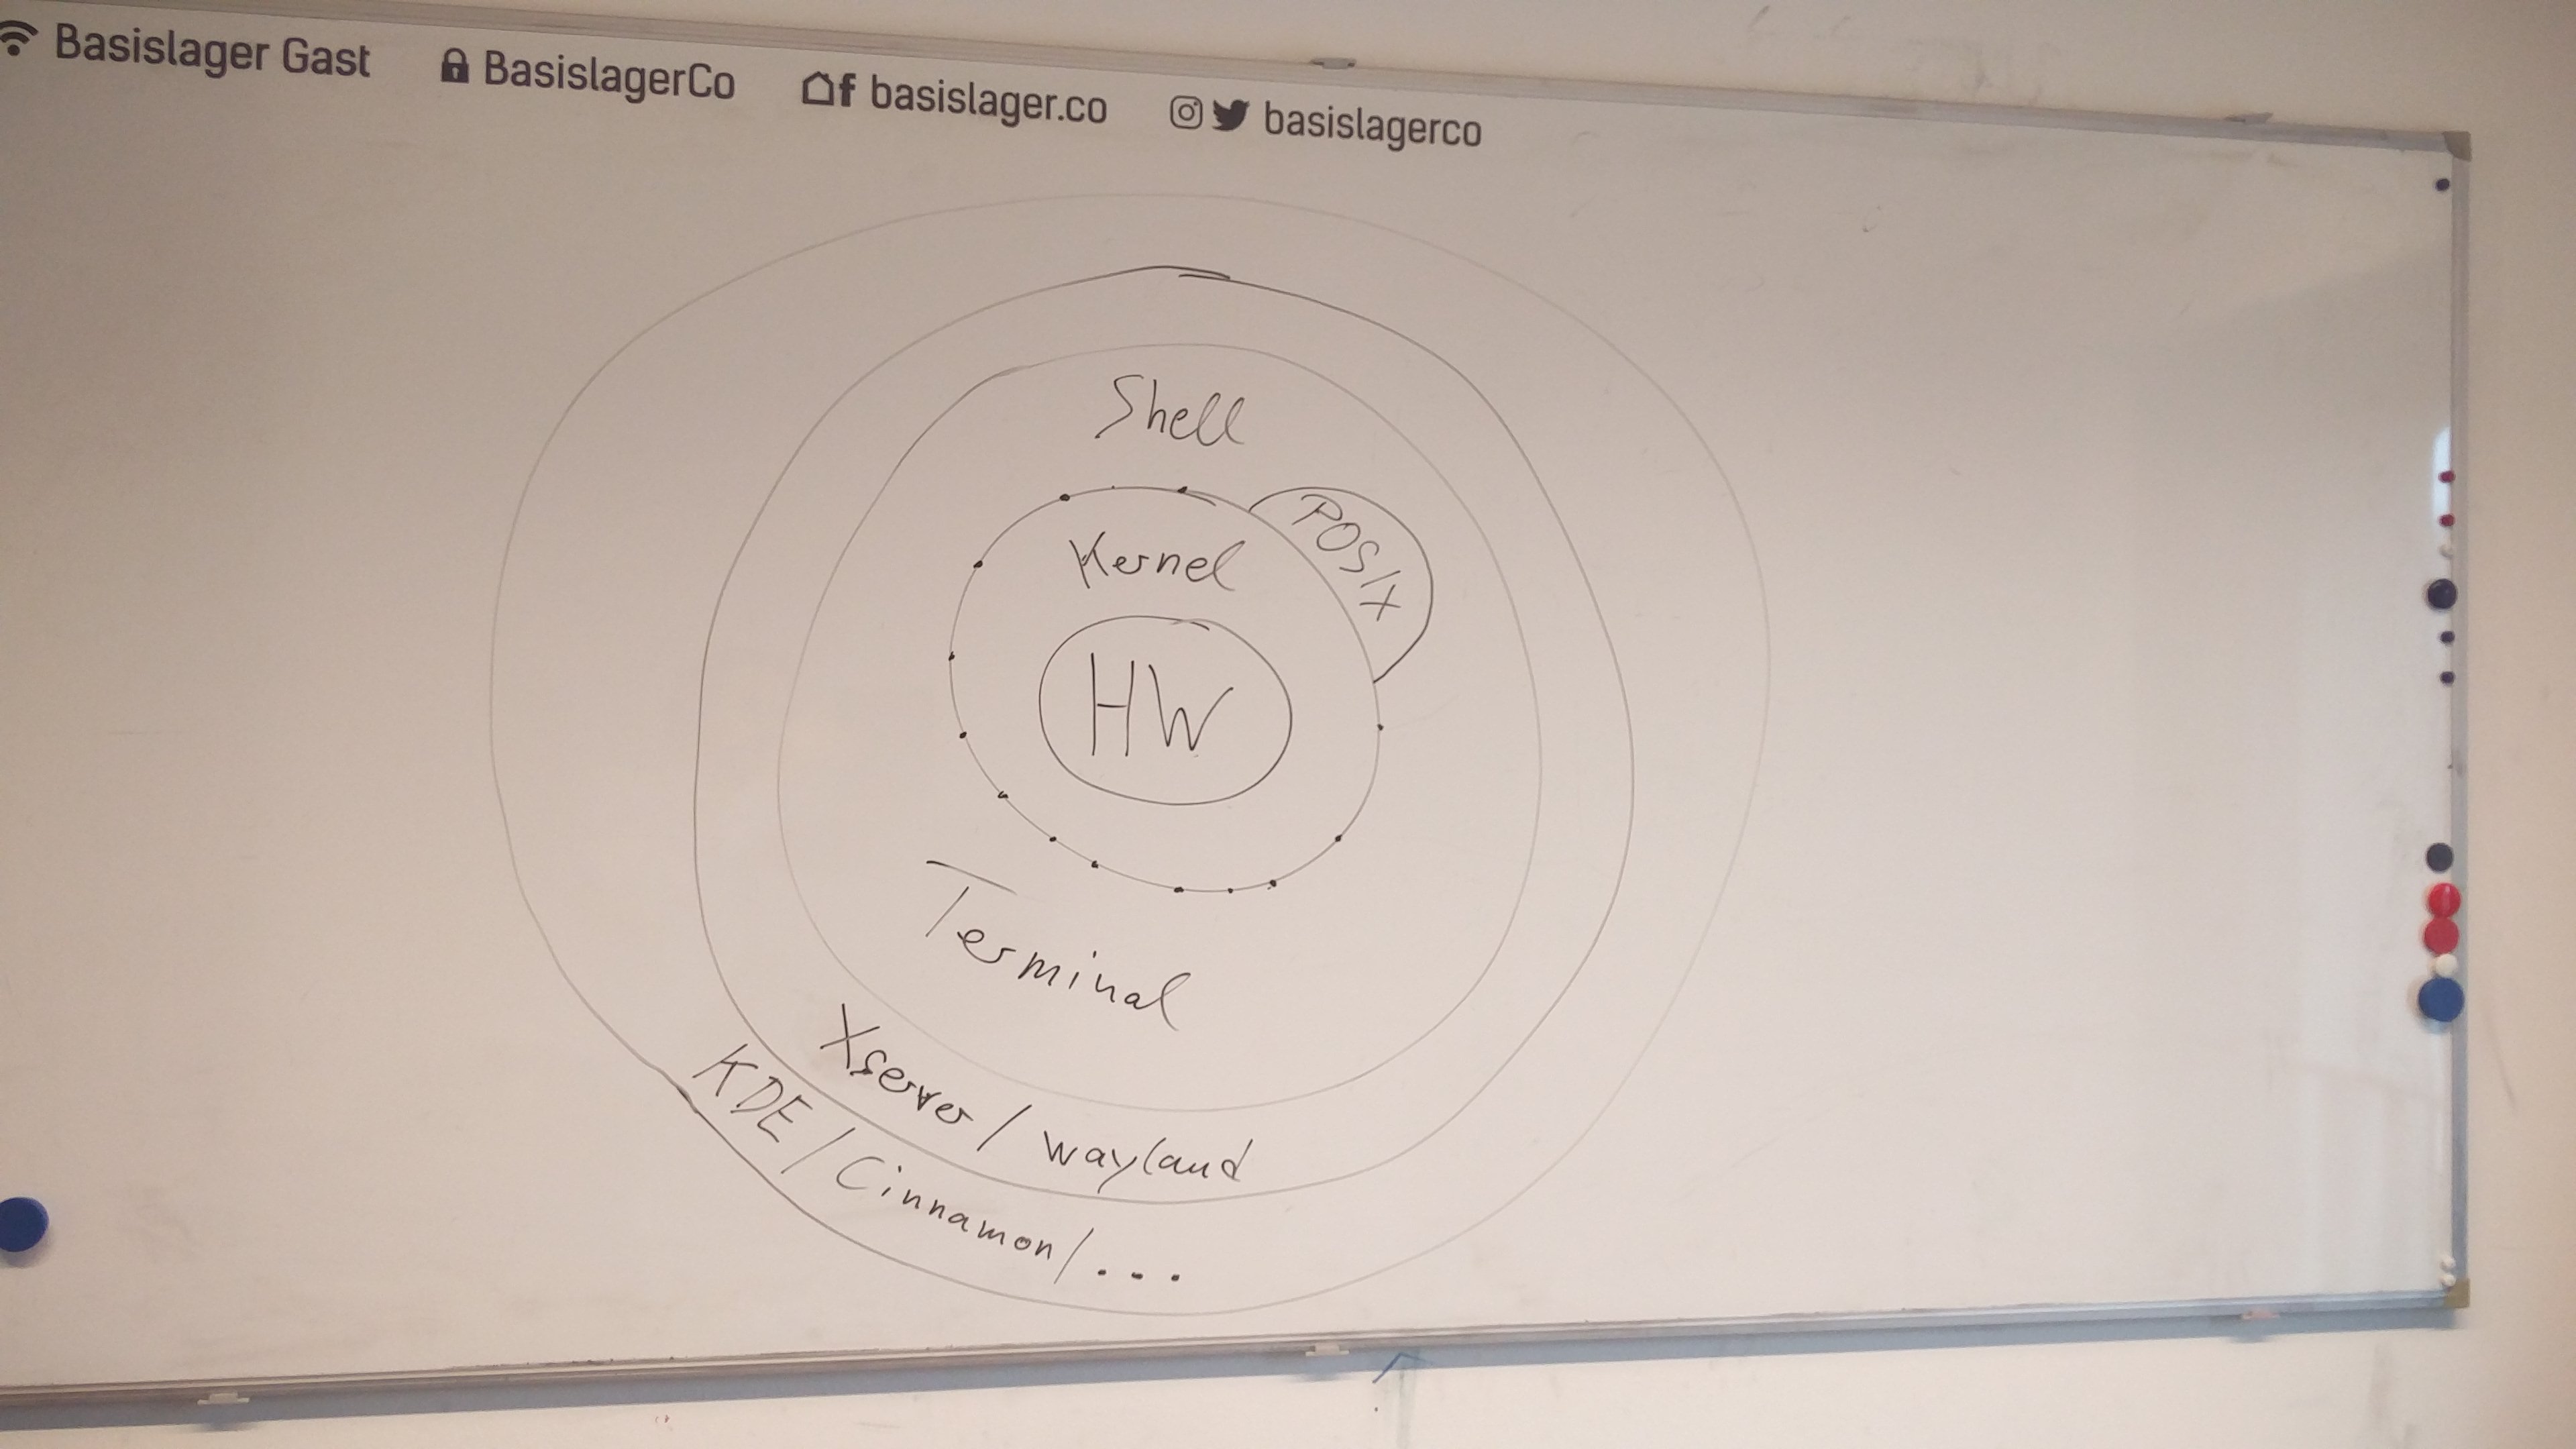 Basislager Gast BasislagerCo basislager.co basislagerco
Shell
POSIX
Kernel
HW
Terminal
Xserver / wayland
KDE / Cinnamon / ...